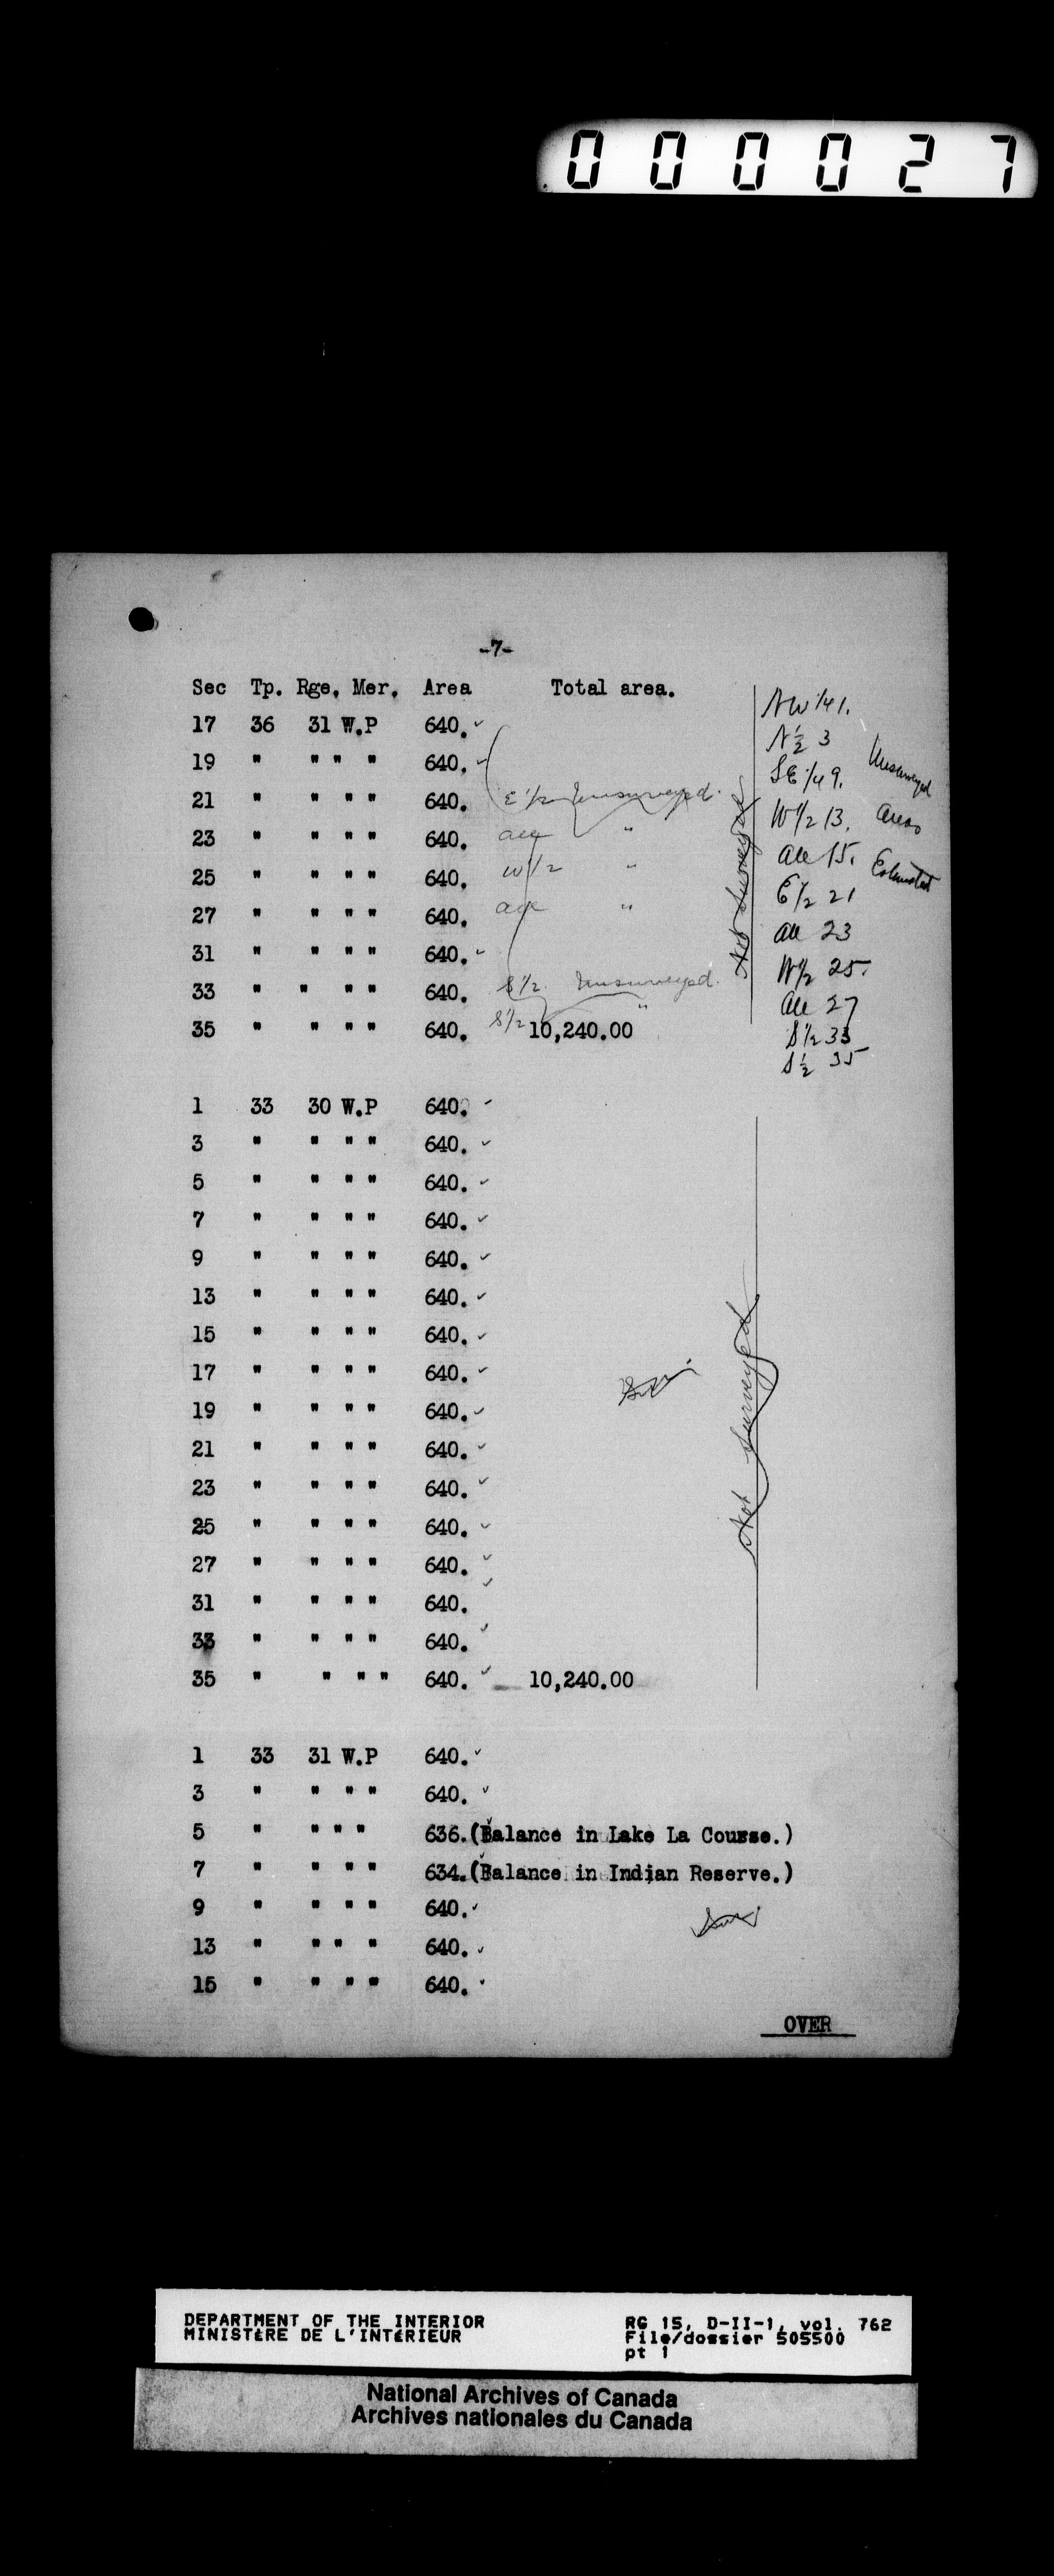 000027
-7-
Sec Tp. Rge. Mer. Area Total area.
17 36 31 W.P 640.
19 " " " " 640.
21 " " " " 640. E 1/2 Unsurveyed.
23 " " " " 640. all "
25 " " " " 640. W 1/2 "
27 " " " " 640. all "
31 " " " " 640.
33 " " " " 640. S 1/2 Unsurveyed.
35 " " " " 640. S 1/2 " 10,240.00
Not Surveyed
NW 1/4 1.
N 1/2 3
SE 1/4 9.
W 1/2 13.
All 15.
E 1/2 21
All 23
W 1/2 25.
All 27
S 1/2 33
S 1/2 35
Unsurveyed
Areas
Estimated
1 33 30 W.P 640.
3 " " " " 640.
5 " " " " 640.
7 " " " " 640.
9 " " " " 640.
13 " " " " 640.
15 " " " " 640.
17 " " " " 640.
19 " " " " 640.
21 " " " " 640.
23 " " " " 640.
25 " " " " 640.
27 " " " " 640.
31 " " " " 640.
33 " " " " 640.
35 " " " " 640. 10,240.00
Not Surveyed
1 33 31 W.P 640.
3 " " " " 640.
5 " " " " 636.(Balance in Lake La Course.)
7 " " " " 634.(Balance in Indian Reserve.)
9 " " " " 640.
13 " " " " 640.
15 " " " " 640.
OVER
DEPARTMENT OF THE INTERIOR
MINISTÈRE DE L'INTÉRIEUR
RG 15, D-II-1, vol. 762
File/dossier 505500
pt 1
National Archives of Canada
Archives nationales du Canada